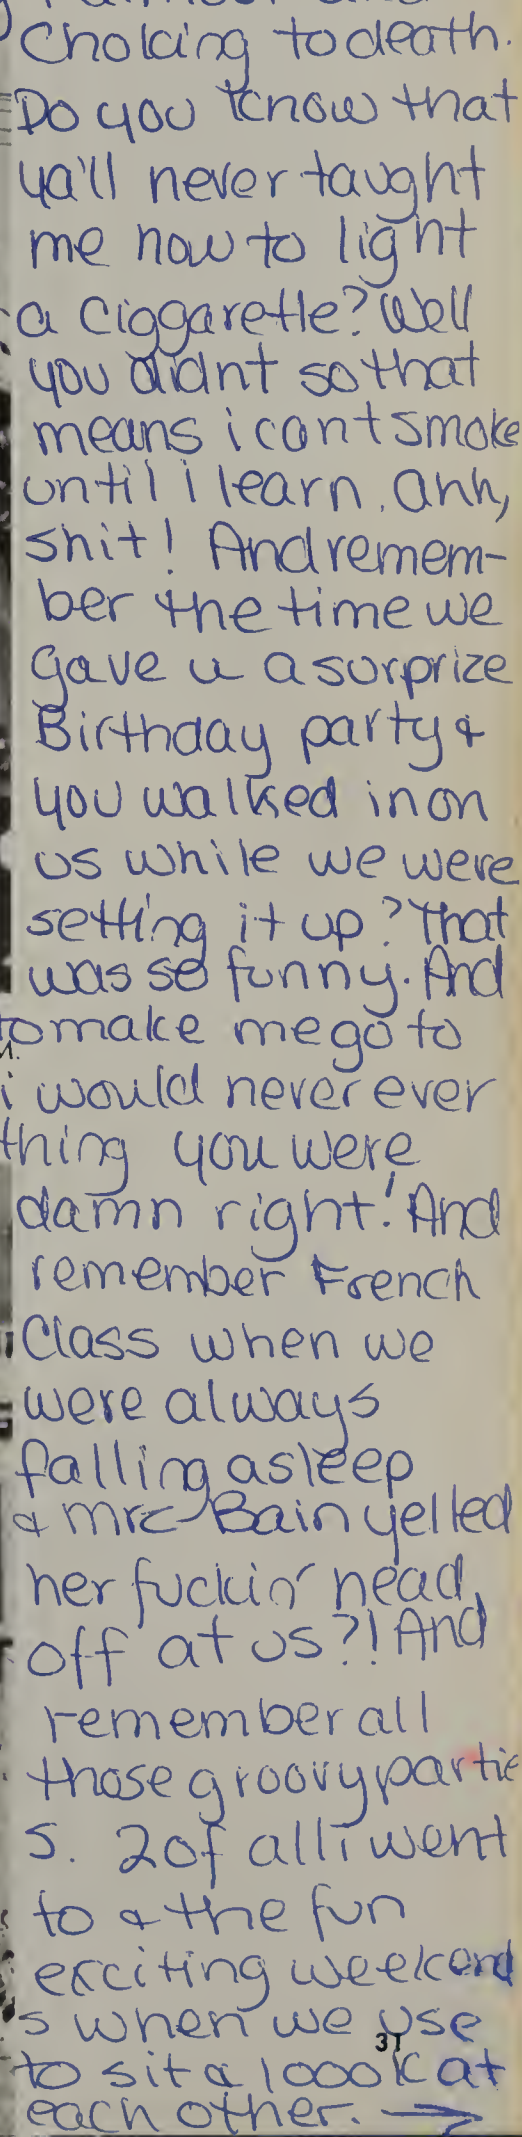 Choking to death.
Do you know that
ya'll never taught
me how to light
a ciggarette? Well
you didnt so that
means i cant smoke
until i learn. ahh,
shit! And remem-
ber the time we
gave u a surprize
Birthday party &
you walked in on
us while we were
setting it up? That
was so funny. And
to make me go to
i would never ever
thing you were
damn right! And
remember French
Class when we
were always
falling asleep
& mrs Bain yelled
her fuckin' head
off at us?! And
remember all
those groovy partie
s. 2 of all i went
to & the fun
exciting weekend
s when we use
31
to sit & loook at
each other. →